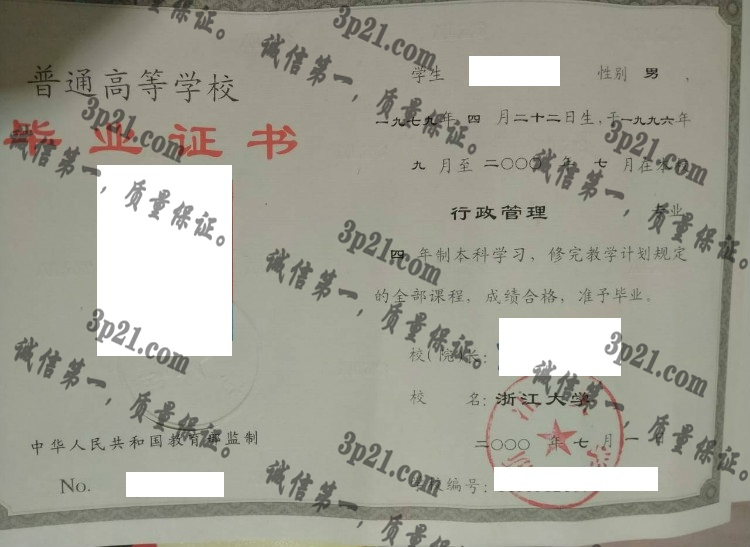 普通高等学校
毕业证书
中华人民共和国教育部监制
No.
学生 性别 男，
一九七九年 四 月二十二日生，于一九九六年
九 月至 二〇〇〇 年 七 月在本校
行政管理 专业
四 年制本科学习，修完教学计划规定
的全部课程，成绩合格，准予毕业。
校（院）长：
校 名：浙江大学
二〇〇〇 年 七 月 一 日
编号：
3p21.com
诚信第一，质量保证。
3p21.com
诚信第一，质量保证。
3p21.com
诚信第一，质量保证。
3p21.com
诚信第一，质量保证。
3p21.com
诚信第一，质量保证。
3p21.com
诚信第一，质量保证。
3p21.com
诚信第一，质量保证。
3p21.com